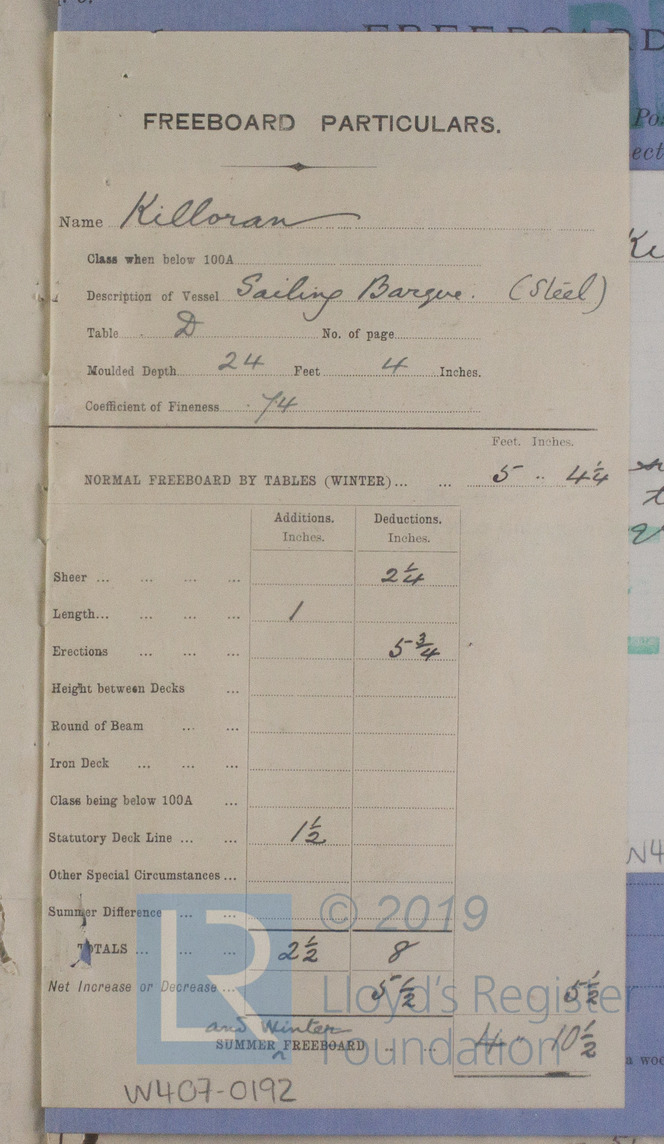 FREEBOARD
FREEBOARD PARTICULARS.
Name Killoran
Class when below 100A
Description of Vessel Sailing Barque. (Steel)
Table D No. of page
Moulded Depth 24 Feet 4 Inches.
Coefficient of Fineness ·74
Feet. Inches.
NORMAL FREEBOARD BY TABLES (WINTER)... ... 5 .. 4¼
Additions. Deductions.
Inches. Inches.
Sheer ... ... ... ... 2¼
Length... ... ... ... 1
Erections ... ... ... 5¾
Height between Decks ...
Round of Beam ... ...
Iron Deck ... ... ...
Class being below 100A ...
Statutory Deck Line ... ... 1½
Other Special Circumstances ...
Summer Difference ... ...
TOTALS ... ... ... 2½ 8
Net Increase or Decrease ... 5½ 5½
and Winter
SUMMER ^ FREEBOARD .. ... 4 " 10½
W407-0192
LR © 2019
Lloyd's Register
Foundation